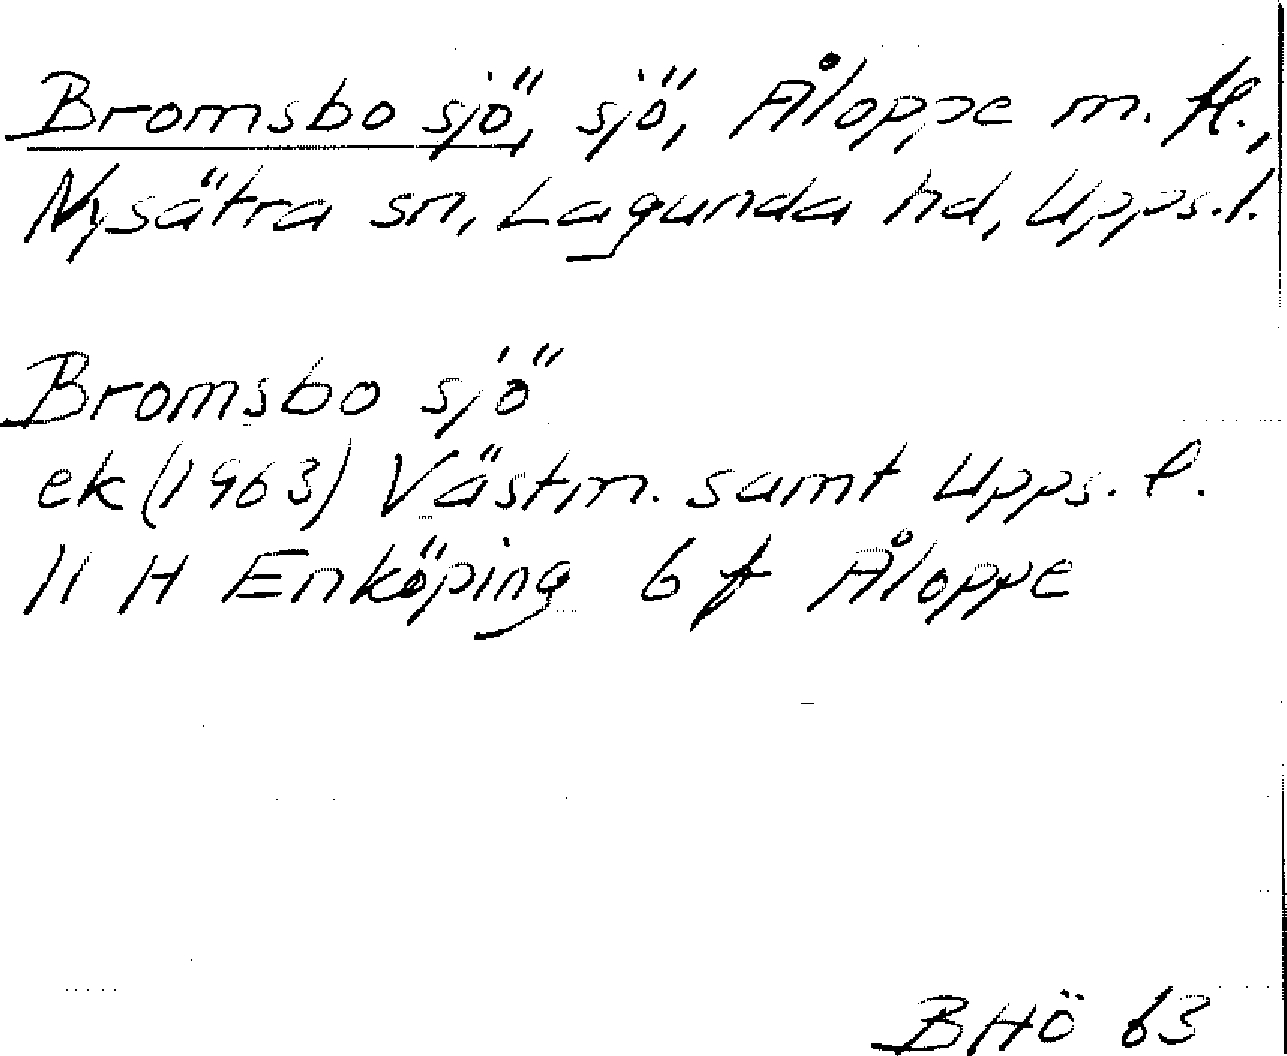 Bromsbo sjö, sjö, Åloppe m. fl.,
Nysätra sn, Lagunda hd, Upps. l.
Bromsbo sjö
ek (1963) Västm. samt Upps. l.
11 H Enköping 6 f Åloppe
BHÖ 63